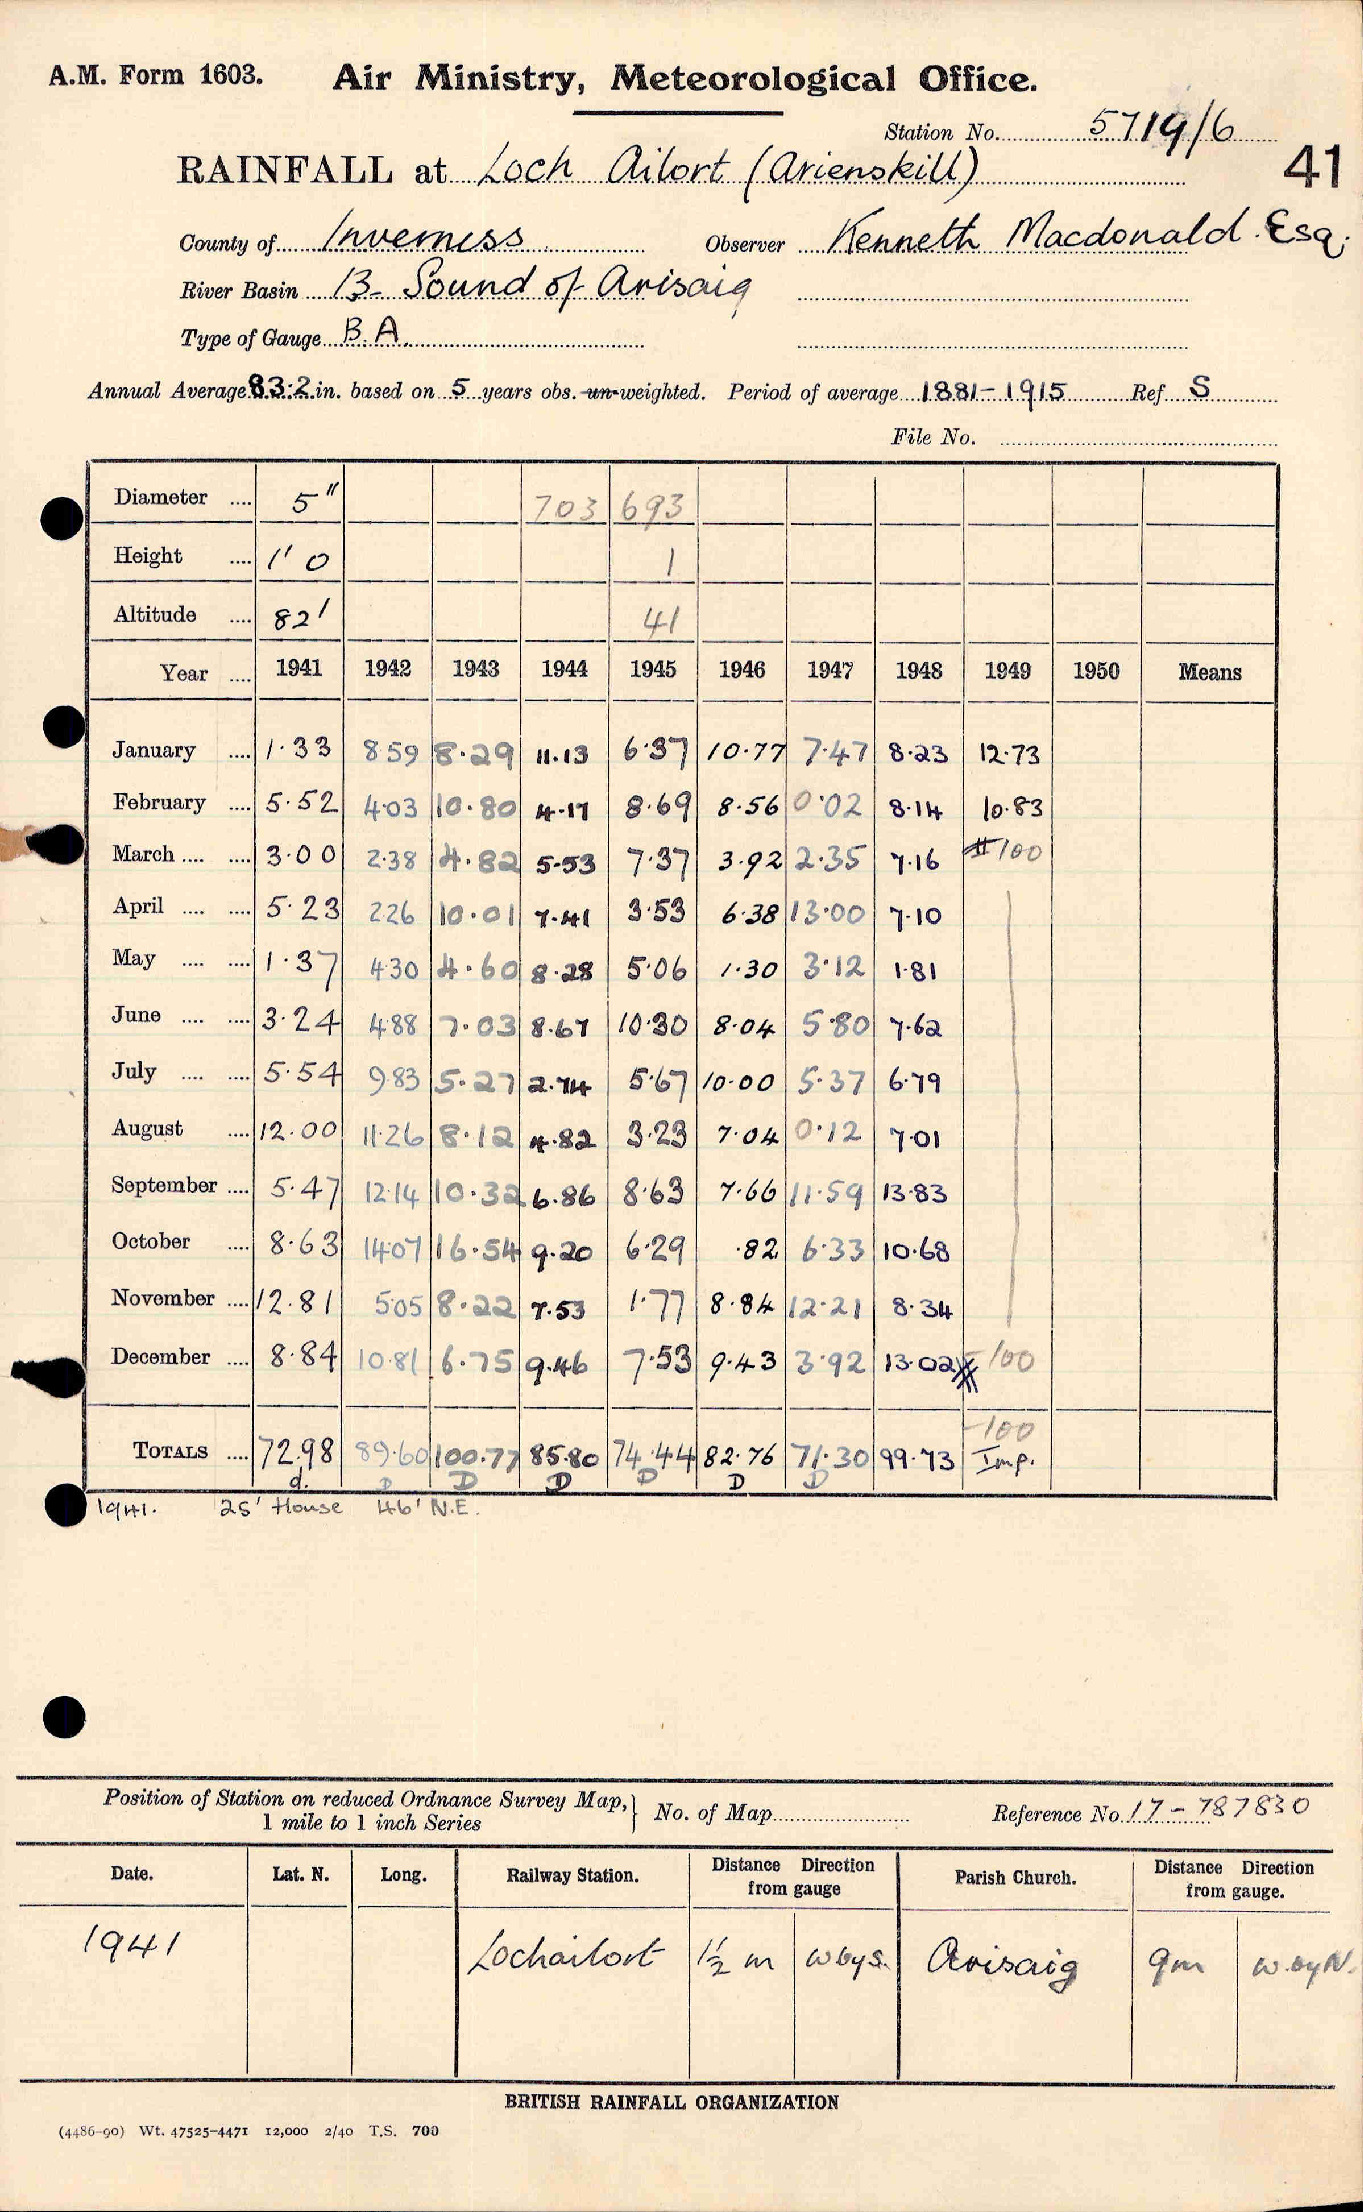 A.M. Form 1603. Air Ministry, Meteorological Office.
Station No. 5719/6
41
RAINFALL at Loch Ailort (Arienskill)
County of Inverness Observer Kenneth Macdonald Esq.
River Basin 13- Sound of Arisaig
Type of Gauge B.A.
Annual Average 83.2 in. based on 5 years obs. un-weighted. Period of average 1881-1915 Ref. S
File No.
Diameter .... 5" 703 693
Height .... 1' 0 1
Altitude .... 82' 41
Year .... 1941 1942 1943 1944 1945 1946 1947 1948 1949 1950 Means
January .... 1.33 8.59 8.29 11.13 6.37 10.77 7.47 8.23 12.73
February .... 5.52 4.03 10.80 4.17 8.69 8.56 0.02 8.14 10.83
March .... .... 3.00 2.38 4.82 5.53 7.37 3.92 2.35 7.16 # 100
April .... .... 5.23 2.26 10.01 7.41 3.53 6.38 13.00 7.10
May .... .... 1.37 4.30 4.60 8.28 5.06 1.30 3.12 1.81
June .... .... 3.24 4.88 7.03 8.67 10.30 8.04 5.80 7.62
July .... .... 5.54 9.83 5.27 2.74 5.67 10.00 5.37 6.79
August .... 12.00 11.26 8.12 4.82 3.23 7.04 0.12 7.01
September .... 5.47 12.14 10.32 6.86 8.63 7.66 11.59 13.83
October .... 8.63 14.07 16.54 9.20 6.29 .82 6.33 10.68
November .... 12.81 5.05 8.22 7.53 1.77 8.84 12.21 8.34
December .... 8.84 10.81 6.75 9.46 7.53 9.43 3.92 13.02 -100
-100
TOTALS .... 72.98 89.60 100.77 85.80 74.44 82.76 71.30 99.73 Imp.
d. D D D D D D
1941. 25' House 46' N.E.
Position of Station on reduced Ordnance Survey Map, 1 mile to 1 inch Series } No. of Map Reference No. 17-787830
Date. Lat. N. Long. Railway Station. Distance Direction from gauge Parish Church. Distance Direction from gauge.
1941 Lochailort 1½ m W by S. Arisaig 9m W. by N.
BRITISH RAINFALL ORGANIZATION
(4486-90) Wt. 47525-4471 12,000 2/40 T.S. 700